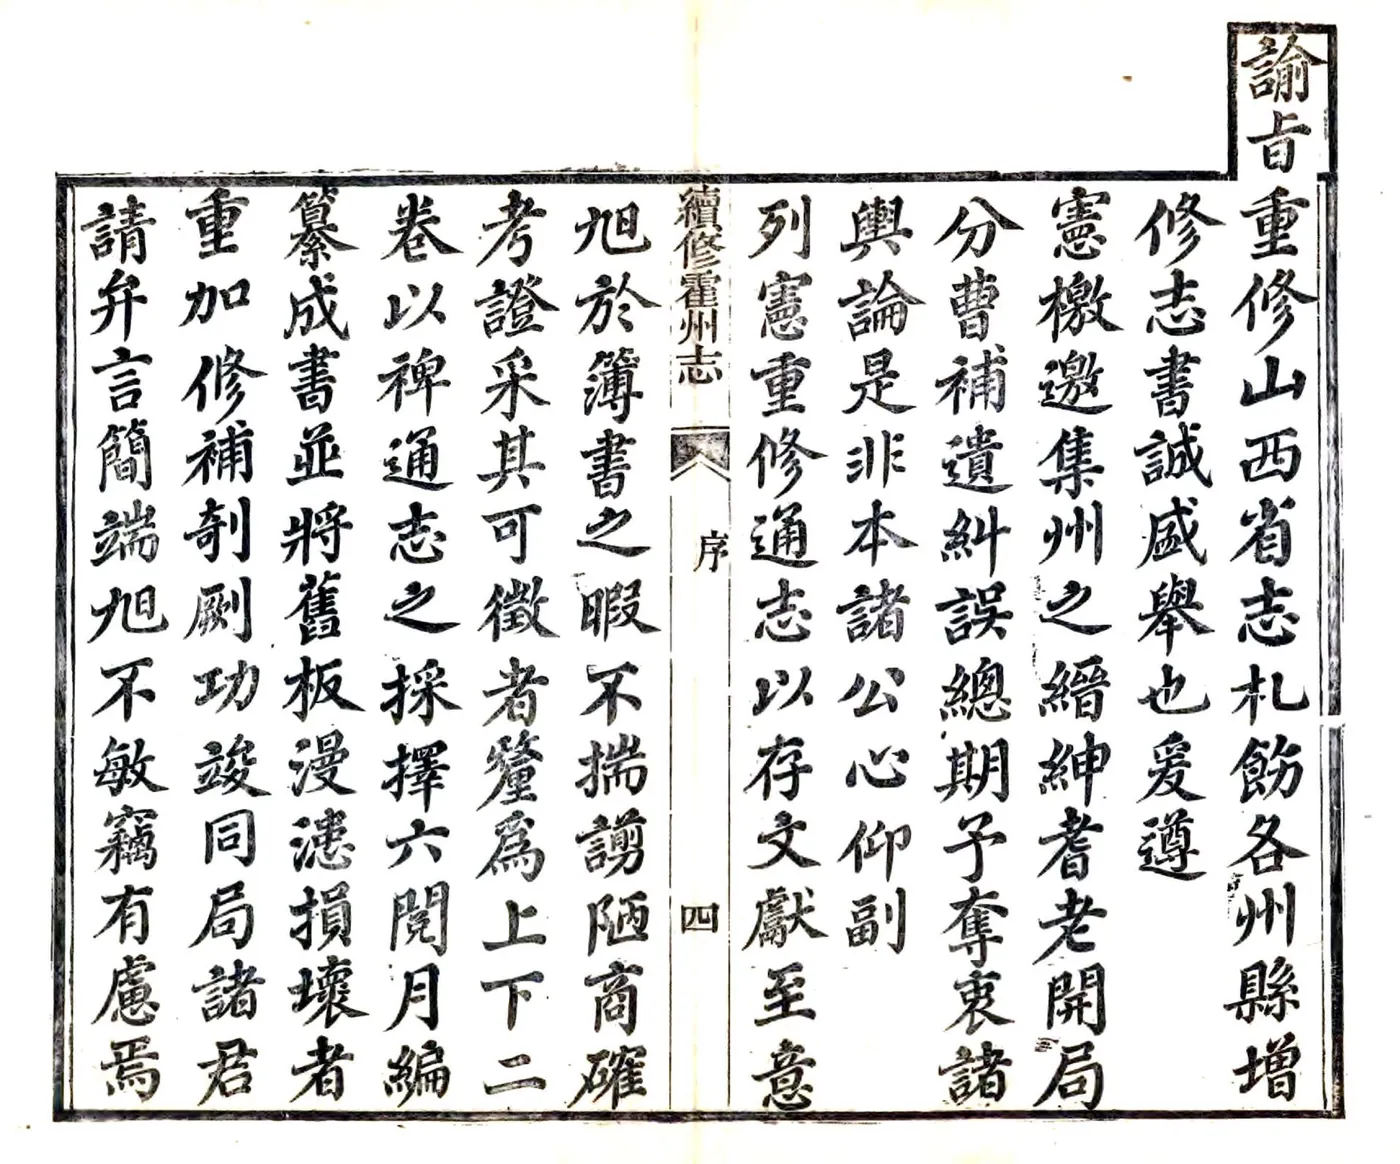 諭旨重修山西省志札飭各州縣增
修志書誠盛舉也爰遵
憲檄邀集州之縉紳耆老開局
分曹補遺糾誤總期予奪衷諸
輿論是非本諸公心仰副
列憲重修通志以存文獻至意
續修霍州志
序
四
旭於簿書之暇不揣謭陋商確
考證采其可徵者釐為上下二
卷以裨通志之採擇六閱月編
纂成書並將舊板漫漶損壞者
重加修補剞劂功竣同局諸君
請弁言簡端旭不敏竊有慮焉